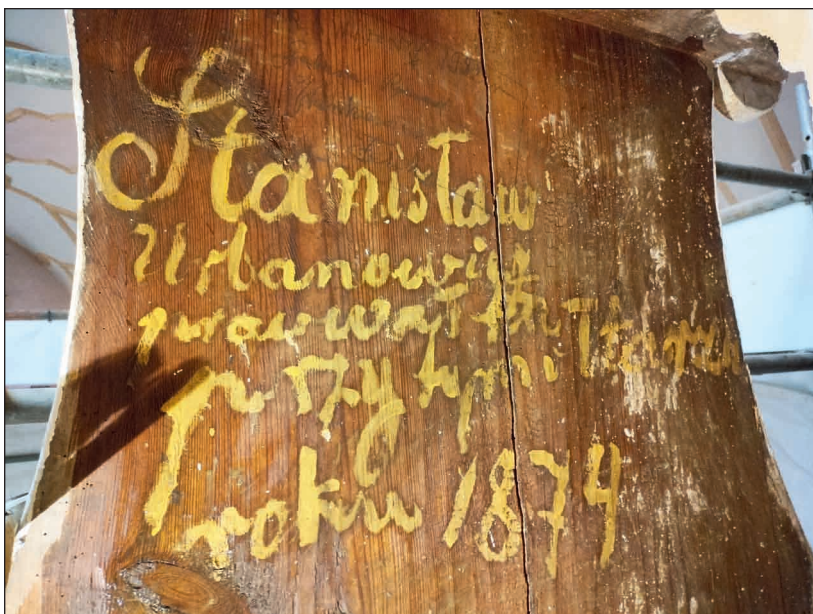 Stanisław
Urbanowicz
pracował
przy tym
roku 1874